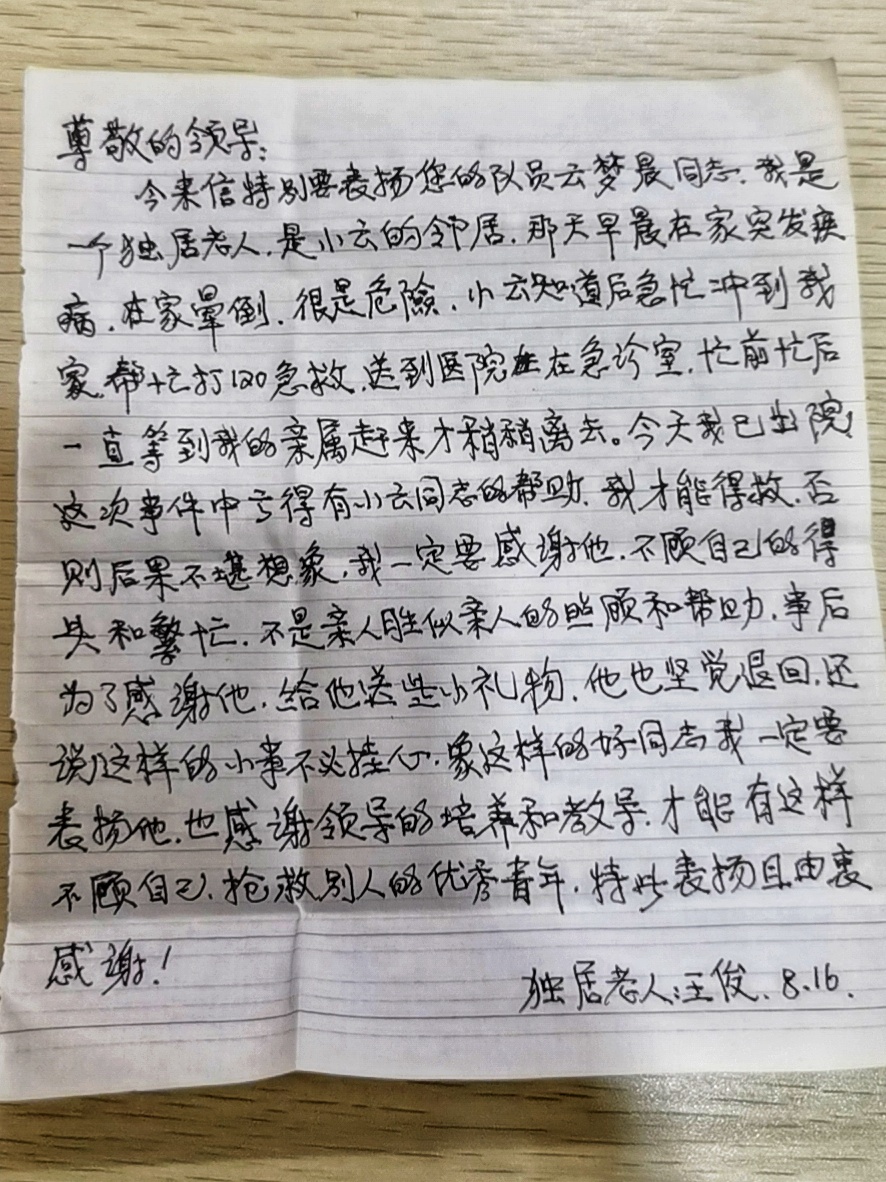 尊敬的领导:
今来信特别要表扬您的队员云梦晨同志.我是
一个独居老人.是小云的邻居.那天早晨在家突发疾
病.在家晕倒.很是危險.小云知道后急忙冲到我
家.帮忙打120急救.送到医院在急诊室.忙前忙后
一直等到我的亲属赶来才稍稍离去。今天我已出院,
这次事件中亏得有小云同志的帮助.我才能得救.否
则后果不堪想象.我一定要感谢他.不顾自己的得
失和繁忙.不是亲人胜似亲人的照顾和帮助.事后
为了感谢他.给他送些小礼物.他也坚觉退回.还
说这样的小事不必挂心.象这样的好同志我一定要
表扬他.也感谢领导的培养和教导.才能有这样
不顾自己.抢救别人的优秀青年.特此表扬且由衷
感谢!
独居老人:汪俊.8.16.